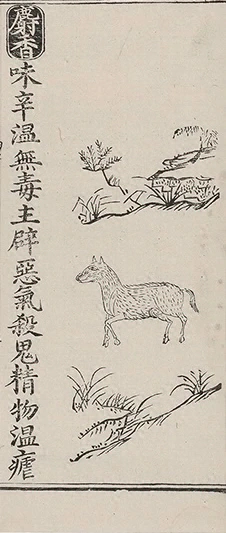 麝香
味辛溫無毒主辟惡氣殺鬼精物溫瘧